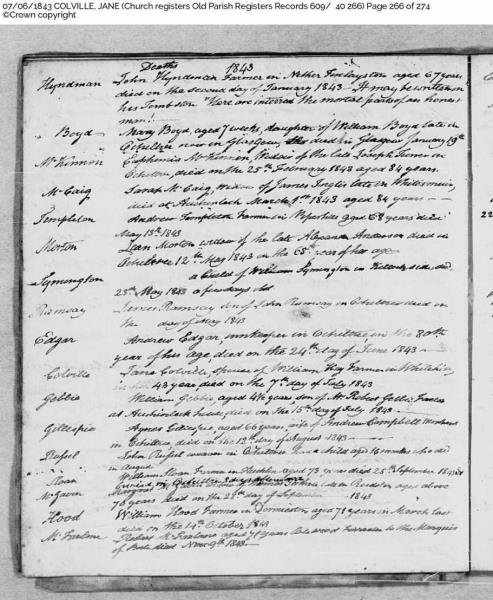 07/06/1843 COLVILLE, JANE (Church registers Old Parish Registers Records 609/ 40 266) Page 266 of 274
©Crown copyright
Deaths 1843
Hyndman John Hyndman Farmer in Nether Finlayston aged 67 years
died on the second day of January 1843 It may be written on
his Tombston "Here are interred the mortal parts of an honest
man!
Boyd Mary Boyd, aged 7 weeks, daughter of William Boyd late in
Ochiltree now in Glasgow, died in Glasgow January 19th
McKinnon Euphemia McKinnon, Widow of the late Joseph
Ochiltree, died on the 25th February 1843 aged 84 years.
McCaig Sarah McCaig, widow of James Ingles late in
died at Auchinleck March 1st 1843 aged 84 years
Templeton Andrew Templeton Farmer in aged 68 years died
May 13th 1843
Morton Jean Morton widow of the late Anderson died in
Ochiltree 12th May 1843 in the 65th year of her age
Symington a Child of William Symington in died
23rd May 1843 a few days old
Ramsay James Ramsay son of John Ramsay in Ochiltree died on
the day of May 1843
Edgar Andrew Edgar, innkeeper in Ochiltree in the 80th
year of his age, died on the 24th day of June 1843
Colville Jane Colville, spouse of William Kay Farmer in
43 year died on the 7th day of July 1843
Gebbie William Gebbie, aged 4½ years, son of Mr Robert Gebbie Farmer
at Auchinleck died on the 15th day of July 1843
Gillespie Agnes Gillespie, aged 66 years, wife of Andrew Campbell
in Ochiltree died on the 12th day of August 1843
Russel John Russel weaver in Ochiltree had a child aged 16 months who died
in August
Sloan William Sloan Farmer in aged 73 years died 25th September 1843
McGavin Margaret late in aged above
76 years died on the day of September 1843
Hood William Hood Farmer in aged 71 years in March last
died on the 14th October 1843
McFarlane Robert McFarlane aged 71 years to the Marquis
of Bute died Novr 9th 1843